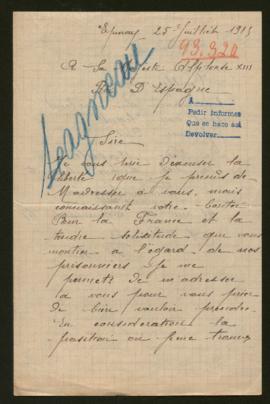 Epinay 25 Juillet 1915
93.320
A Sa Majesté Alphonse XIII
Roi D'Espagne
A
Pedir Informes
Que se hace así
Devolver
Seagneau
Sire
Je vous prie D'excuser la
liberté que je prends de
M'adresser à vous, mais
connaissant votre
Pour la France et la
tendre solicitude que vous
montrer a l'égard de nos
prisonniers je me
permets De m'adresser
a vous pour vous prier
de bien vouloir prendre
En consideration la
position ou je me trouve